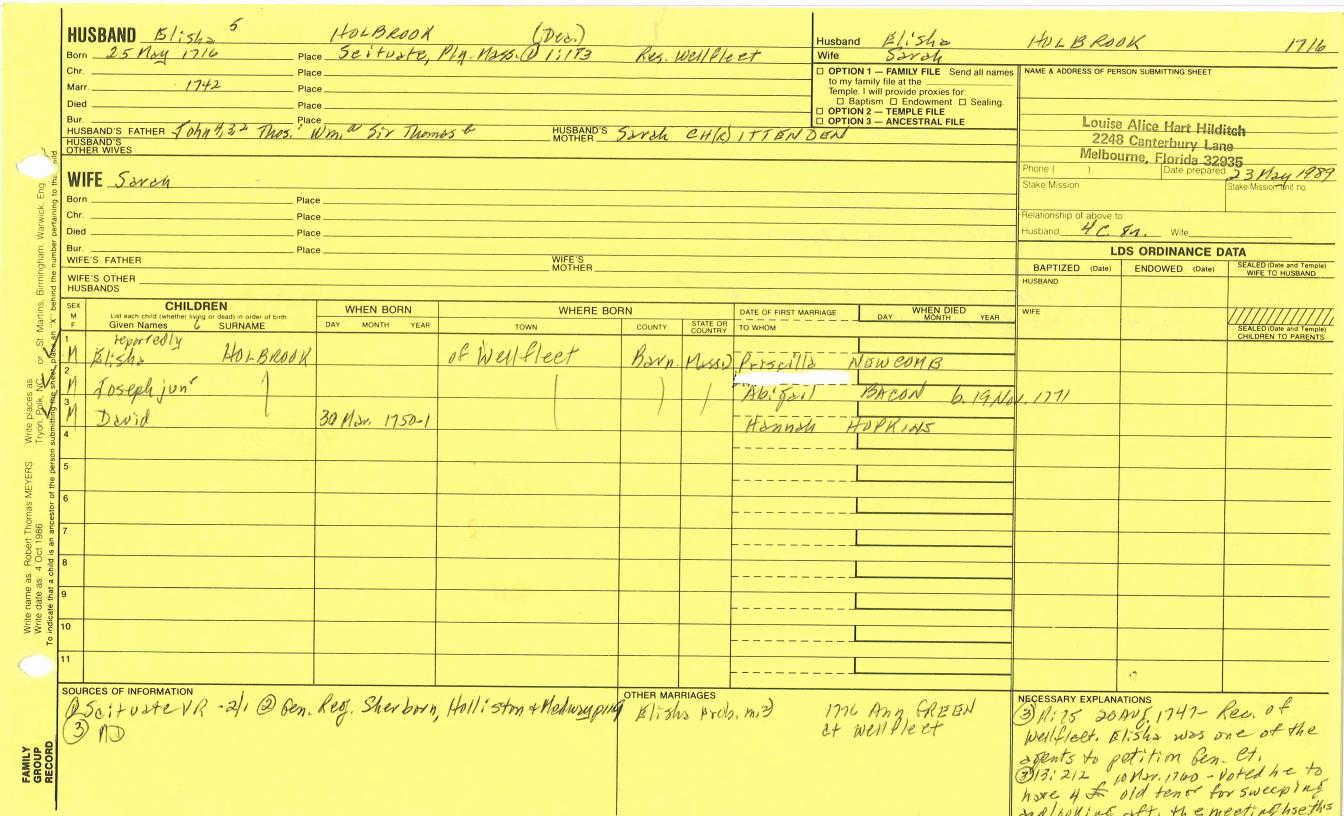 HUSBAND Elisha 5 HOLBROOK (Dea.)
Born 25 May 1716 Place Scituate, Ply. Mass. ① 1:183 Res. Wellfleet
Chr. Place
Marr. 1742 Place
Died Place
Bur. Place
HUSBAND'S FATHER John 4,3,2 Thos.1 Wm.a Sir Thomas b HUSBAND'S MOTHER Sarah CH(R)ITTENDEN
HUSBAND'S OTHER WIVES
Husband Elisha HOLBROOK 1716
Wife Sarah
☐ OPTION 1 — FAMILY FILE Send all names
to my family file at the
Temple. I will provide proxies for:
☐ Baptism ☐ Endowment ☐ Sealing.
☐ OPTION 2 — TEMPLE FILE
☐ OPTION 3 — ANCESTRAL FILE
NAME & ADDRESS OF PERSON SUBMITTING SHEET
Louise Alice Hart Hilditch
2248 Canterbury Lane
Melbourne, Florida 32935
Phone ( ) Date prepared 23 May 1989
Stake Mission Stake Mission unit no.
Relationship of above to
Husband 4 C. 8r. Wife
WIFE Sarah
Born Place
Chr. Place
Died Place
Bur. Place
WIFE'S FATHER WIFE'S MOTHER
WIFE'S OTHER HUSBANDS
LDS ORDINANCE DATA
BAPTIZED (Date) ENDOWED (Date) SEALED (Date and Temple) WIFE TO HUSBAND
HUSBAND
WIFE
SEALED (Date and Temple) CHILDREN TO PARENTS
SEX M F
CHILDREN
List each child (whether living or dead) in order of birth
Given Names 6 SURNAME
WHEN BORN
DAY MONTH YEAR
WHERE BORN
TOWN COUNTY STATE OR COUNTRY
DATE OF FIRST MARRIAGE
TO WHOM
WHEN DIED
DAY MONTH YEAR
1 reportedly
M Elisha HOLBROOK of Wellfleet Barn. Mass. Priscilla NEWCOMB
2
M Joseph junr Abigail BACON b. 19 Nov. 1771
3
M David 30 Mar. 1750-1 Hannah HOPKINS
4
5
6
7
8
9
10
11
SOURCES OF INFORMATION
① Scituate VR - 2/1 ② Gen. Reg. Sherborn, Holliston & Medway
③ MD
OTHER MARRIAGES
Elisha prob. m. 2) 1776 Ann GREEN
at Wellfleet
NECESSARY EXPLANATIONS
③ 11:75 20 Aug. 1747 - Rec. of
Wellfleet. Elisha was one of the
agents to petition Gen. Ct.
③ 13:212 10 Mar. 1760 - voted he to
have 4 £ old tenor for sweeping
and looking aft. the meeting hse this
Write name as: Robert Thomas MEYERS Write places as: Tryon, Polk, NC or St. Martins, Birmingham, Warwick, Eng
Write date as: 4 Oct 1986
To indicate that a child is an ancestor of the person submitting the sheet, place an "X" behind the number pertaining to that child.
FAMILY
GROUP
RECORD